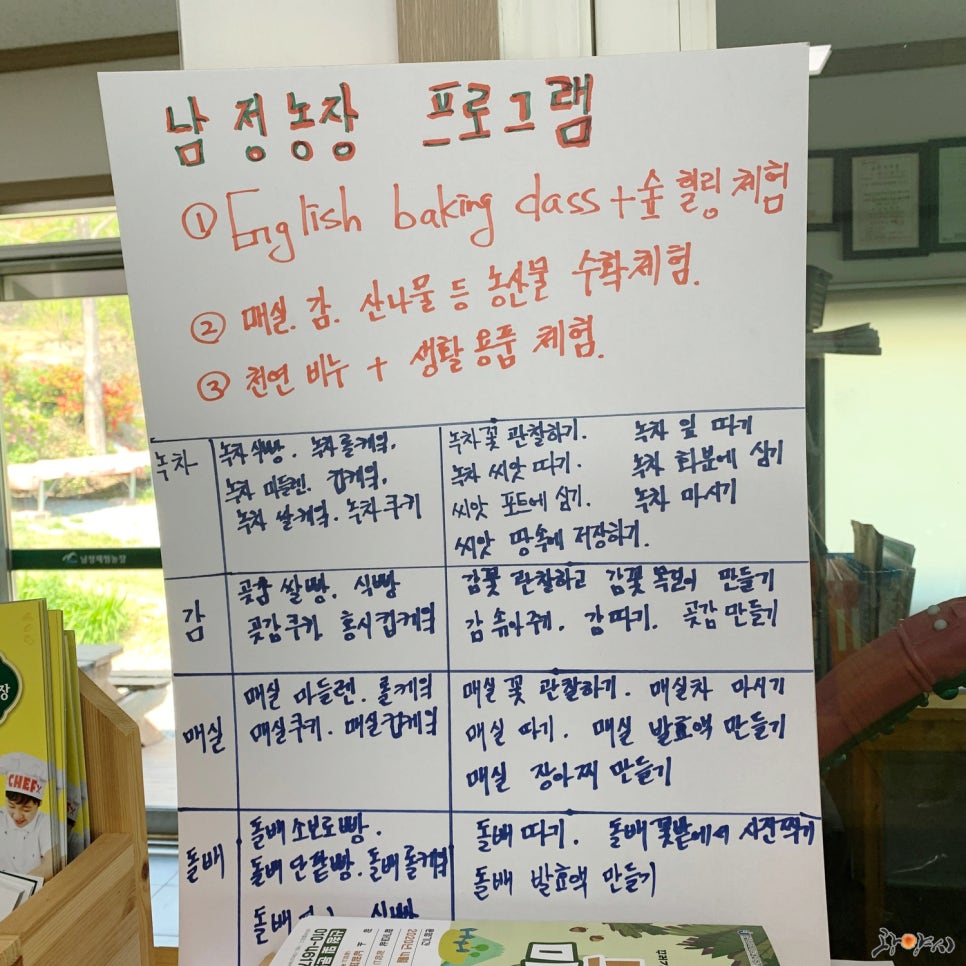 남정농장 프로그램
① English baking class + 숲 힐링 체험
② 매실. 감. 산나물 등 농산물 수확체험.
③ 천연 비누 + 생활용품 체험.
녹차
녹차식빵. 녹차롤케익.
녹차 마들렌. 컵케익.
녹차 쌀케익. 녹차쿠키
녹차꽃 관찰하기. 녹차 잎 따기
녹차 씨앗 따기. 녹차 화분에 심기
씨앗 포트에 심기. 녹차 마시기
씨앗 땅속에 저장하기.
감
쌀빵. 식빵
곶감쿠키. 홍시컵케익
감꽃 관찰하고 감꽃 목걸이 만들기
감 솎아주기. 감따기. 곶감 만들기
매실
매실 마들렌. 롤케익
매실쿠키. 매실컵케익
매실꽃 관찰하기. 매실차 마시기
매실 따기. 매실 발효액 만들기
매실 장아찌 만들기
돌배
돌배소보로빵.
돌배단팥빵. 돌배롤케익
돌배 식빵
돌배 따기. 돌배꽃밭에서 사진찍기
돌배 발효액 만들기
CHEF
장
010-4617